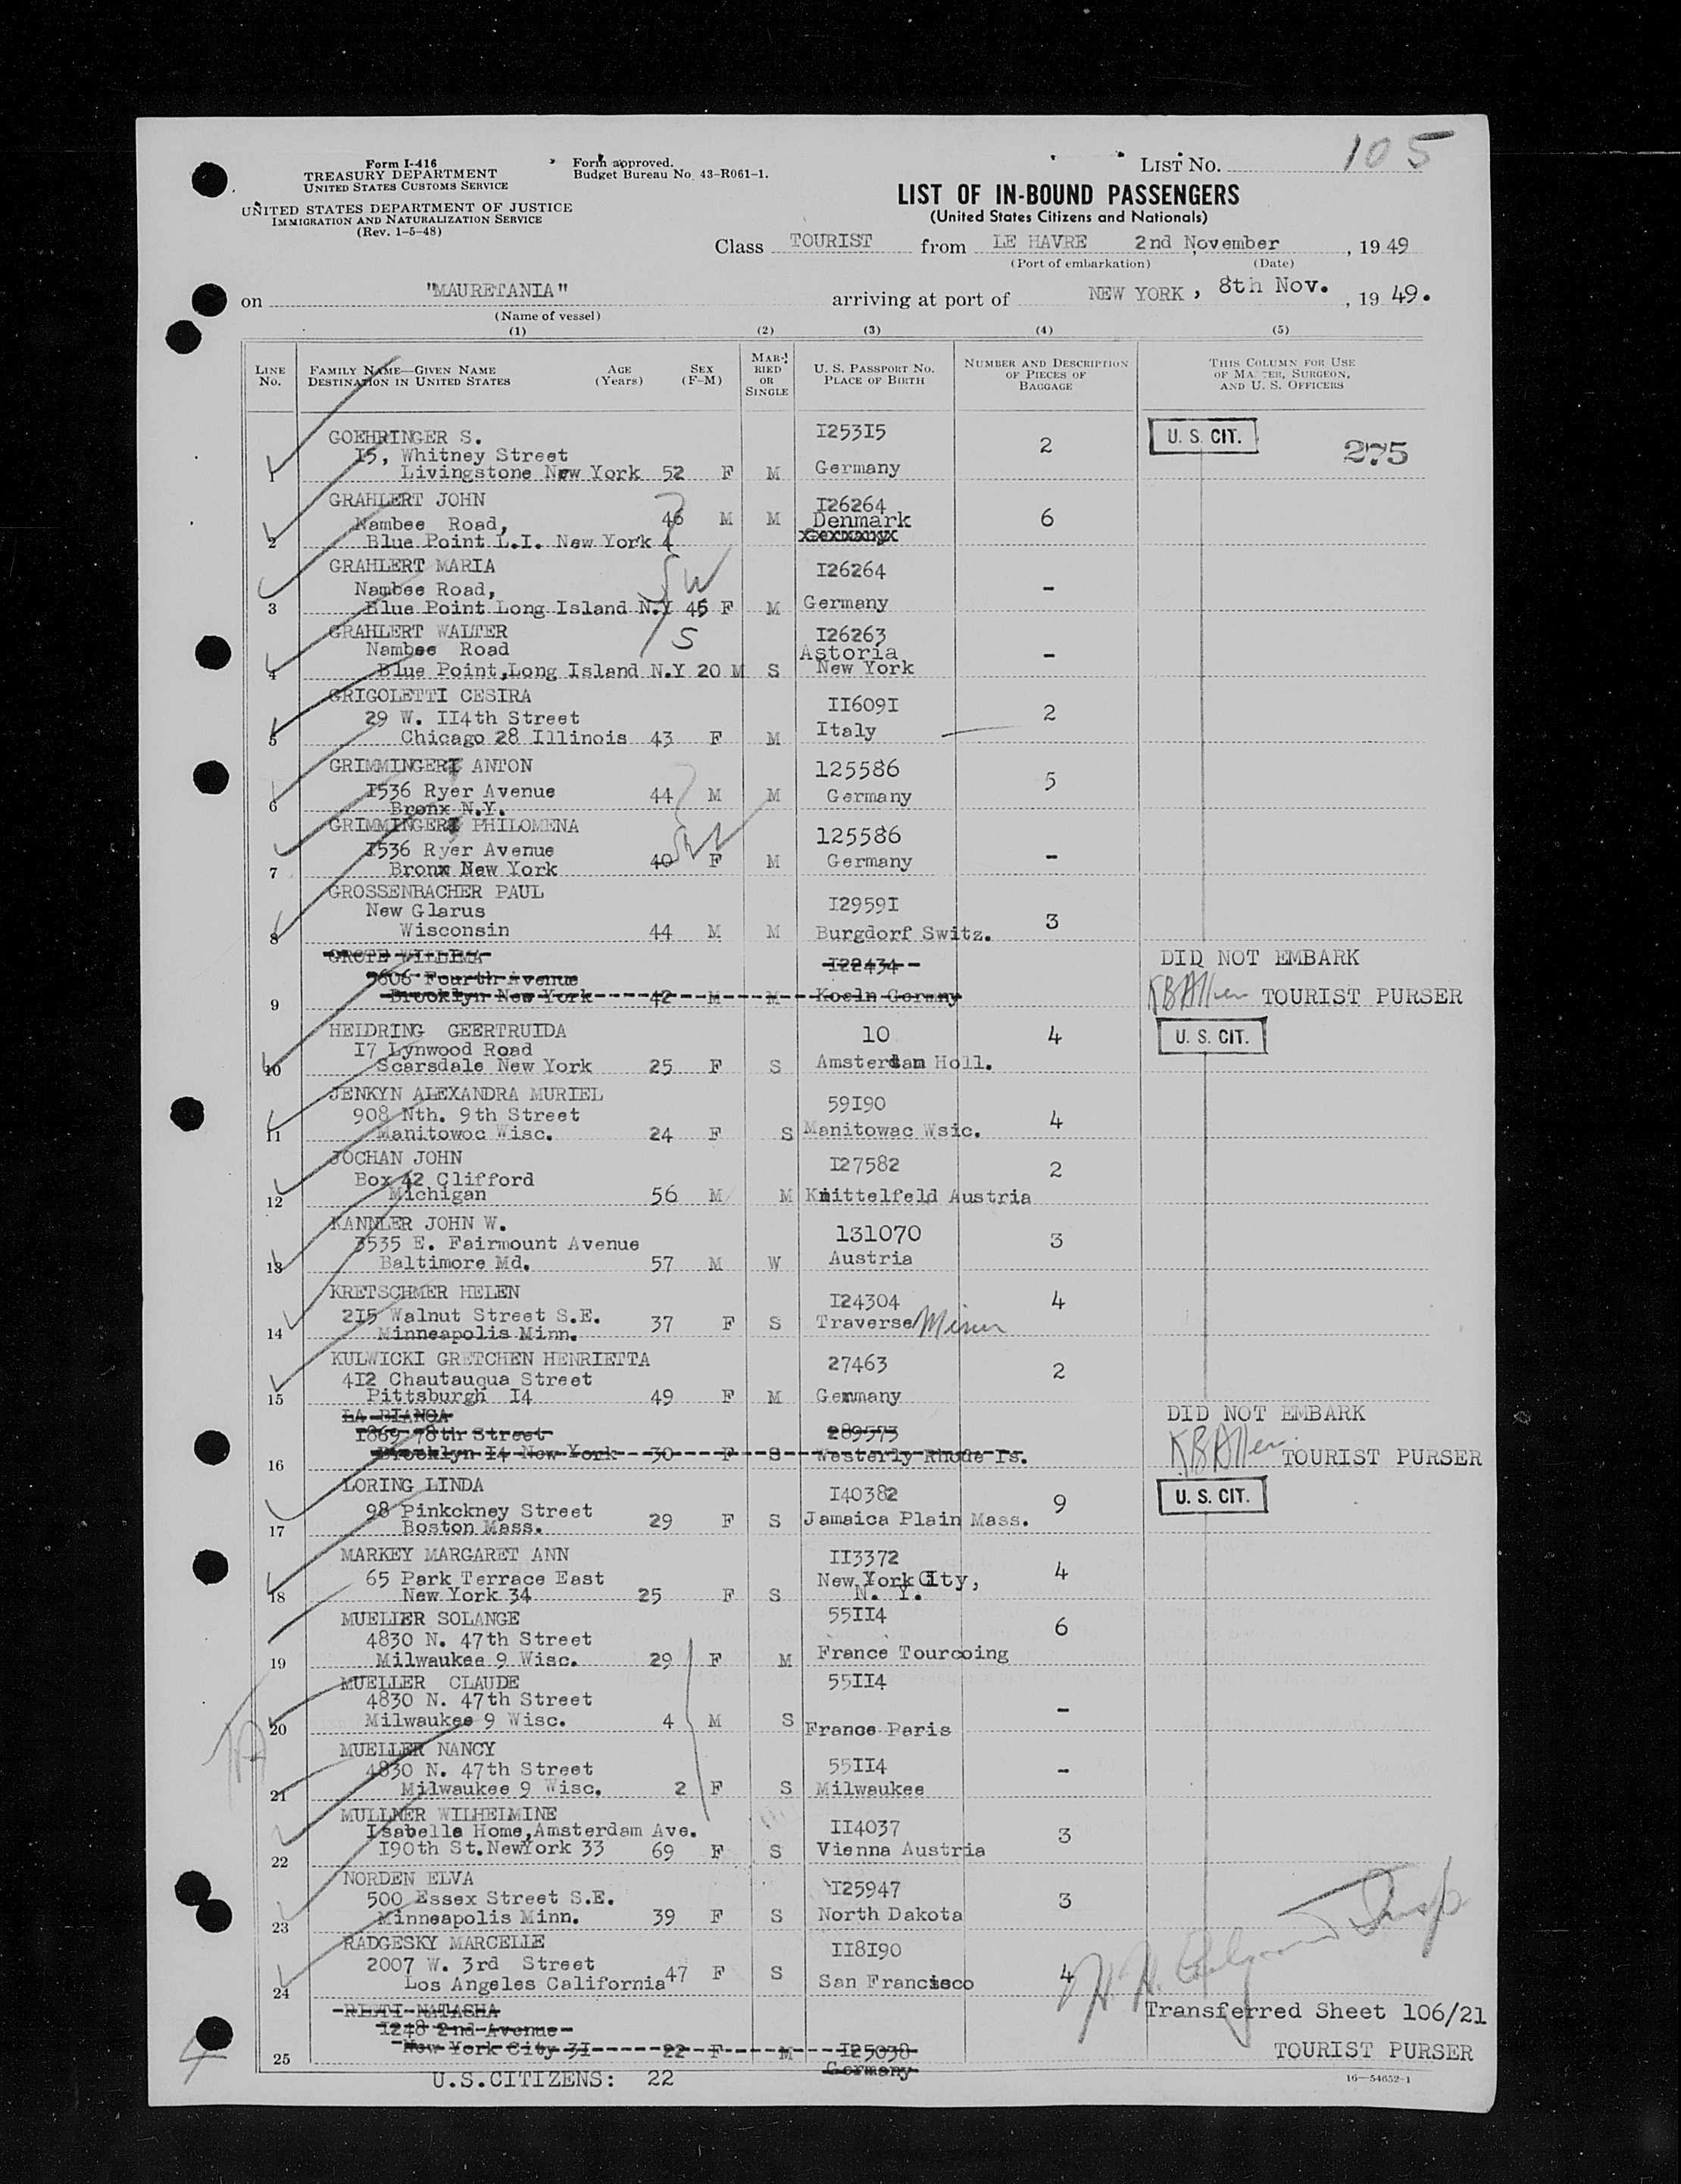 Form I-416
TREASURY DEPARTMENT
UNITED STATES CUSTOMS SERVICE
UNITED STATES DEPARTMENT OF JUSTICE
IMMIGRATION AND NATURALIZATION SERVICE
(Rev. 1-5-48)
Form approved.
Budget Bureau No. 43-R061-1.
LIST No. 105
LIST OF IN-BOUND PASSENGERS
(United States Citizens and Nationals)
Class TOURIST from LE HAVRE 2nd November, 1949
(Port of embarkation) (Date)
on "MAURETANIA" arriving at port of NEW YORK, 8th Nov., 1949.
(Name of vessel)
(1) (2) (3) (4) (5)
LINE No. FAMILY NAME—GIVEN NAME DESTINATION IN UNITED STATES AGE (Years) SEX (F-M) MARRIED OR SINGLE U. S. PASSPORT No. PLACE OF BIRTH NUMBER AND DESCRIPTION OF PIECES OF BAGGAGE THIS COLUMN FOR USE OF MASTER, SURGEON, AND U. S. OFFICERS
GOEHRINGER S. I253I5 2 U. S. CIT. 275
I5, Whitney Street
1 Livingstone New York 52 F M Germany
GRAHLERT JOHN I26264
Nambee Road, 46 M M Denmark 6
2 Blue Point L.I. New York Germany
GRAHLERT MARIA I26264
Nambee Road, -
3 Blue Point Long Island N.Y 45 F M Germany
GRAHLERT WALTER S I26263
Nambee Road Astoria -
4 Blue Point,Long Island N.Y 20 M S New York
GRIGOLETTI CESIRA II609I
29 W. II4th Street 2
5 Chicago 28 Illinois 43 F M Italy
GRIMMINGER ANTON 125586
I536 Ryer Avenue 44 M M Germany 5
6 Bronx N.Y.
GRIMMINGER PHILOMENA 125586
I536 Ryer Avenue 40 F M Germany -
7 Bronx New York
GROSSENBACHER PAUL I2959I
New Glarus 3
8 Wisconsin 44 M M Burgdorf Switz.
GROTE I22434 DID NOT EMBARK
5606 Fourth Avenue
9 Brooklyn New York 42 M M Koeln Germny KBAllen TOURIST PURSER
HEIDRING GEERTRUIDA 10 4 U. S. CIT.
I7 Lynwood Road
10 Scarsdale New York 25 F S Amsterdam Holl.
JENKYN ALEXANDRA MURIEL 59I90
908 Nth. 9th Street 4
11 Manitowoc Wisc. 24 F S Manitowac Wsic.
JOCHAN JOHN I27582 2
Box 42 Clifford
12 Michigan 56 M M Knittelfeld Austria
KANNLER JOHN W. 131070 3
3535 E. Fairmount Avenue
13 Baltimore Md. 57 M W Austria
KRETSCHMER HELEN I24304 4
2I5 Walnut Street S.E. 37 F S Traverse
14 Minneapolis Minn.
KULWICKI GRETCHEN HENRIETTA 27463 2
4I2 Chautauqua Street
15 Pittsburgh I4 49 F M Germany
LA BIANCA 289573 DID NOT EMBARK
I869 78th Street
16 Brooklyn I4 New York 30 F S Westerly Rhode Is. KBAllen TOURIST PURSER
LORING LINDA I40382 9 U. S. CIT.
98 Pinkckney Street 29 F S Jamaica Plain Mass.
17 Boston Mass.
MARKEY MARGARET ANN II3372 4
65 Park Terrace East New York City,
18 New York 34 25 F S N. Y.
MUELLER SOLANGE 55II4 6
4830 N. 47th Street
19 Milwaukee 9 Wisc. 29 F M France Tourcoing
MUELLER CLAUDE 55II4
4830 N. 47th Street -
20 Milwaukee 9 Wisc. 4 M S France Paris
MUELLER NANCY 55II4
4830 N. 47th Street -
21 Milwaukee 9 Wisc. 2 F S Milwaukee
MULLNER WILHELMINE II4037
Isabella Home,Amsterdam Ave. 3
22 I90th St.NewYork 33 69 F S Vienna Austria
NORDEN ELVA I25947
500 Essex Street S.E. 3
23 Minneapolis Minn. 39 F S North Dakota
RADGESKY MARCELLE II8I90
2007 W. 3rd Street 4
24 Los Angeles California 47 F S San Francisco
RIETI NATASHA Transferred Sheet 106/21
I248 2nd Avenue
25 New York City 3I 22 F M I25038 TOURIST PURSER
Germany
U.S.CITIZENS: 22
16—54652-1